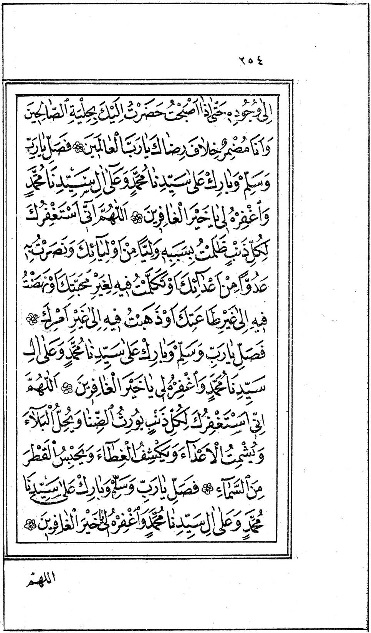 ٢٥٤
إِلَى وُجُودِهِ حَتَّى إِذَا أَصْبَحْتُ حَضَرْتُ إِلَيْكَ بِحِلْيَةِ الصَّالِحِينَ
وَأَنَا مُضْمِرٌ خِلَافَ رِضَاكَ يَا رَبَّ الْعَالَمِينَ ۞ فَصَلِّ يَا رَبِّ
وَسَلِّمْ وَبَارِكْ عَلَى سَيِّدِنَا مُحَمَّدٍ وَعَلَى آلِ سَيِّدِنَا مُحَمَّدٍ
وَاغْفِرْهُ لِي يَا خَيْرَ الْغَافِرِينَ ۞ اَللّٰهُمَّ إِنِّي أَسْتَغْفِرُكَ
لِكُلِّ ذَنْبٍ ظَلَمْتُ بِسَبَبِهِ وَلِيًّا مِنْ أَوْلِيَائِكَ وَنَصَرْتُ بِهِ
عَدُوًّا مِنْ أَعْدَائِكَ أَوْ تَكَلَّمْتُ فِيهِ لِغَيْرِ مَحَبَّتِكَ أَوْ نَهَضْتُ
فِيهِ إِلَى غَيْرِ طَاعَتِكَ أَوْ ذَهَبْتُ فِيهِ إِلَى غَيْرِ أَمْرِكَ ۞
فَصَلِّ يَا رَبِّ وَسَلِّمْ وَبَارِكْ عَلَى سَيِّدِنَا مُحَمَّدٍ وَعَلَى آلِ
سَيِّدِنَا مُحَمَّدٍ وَاغْفِرْهُ لِي يَا خَيْرَ الْغَافِرِينَ ۞ اَللّٰهُمَّ
إِنِّي أَسْتَغْفِرُكَ لِكُلِّ ذَنْبٍ يُورِثُ الضَّنَا وَيُحِلُّ الْبَلَاءَ
وَيُشْمِتُ الْأَعْدَاءَ وَيَكْشِفُ الْغِطَاءَ وَيَحْبِسُ الْقَطْرَ
مِنَ السَّمَاءِ ۞ فَصَلِّ يَا رَبِّ وَسَلِّمْ وَبَارِكْ عَلَى سَيِّدِنَا
مُحَمَّدٍ وَعَلَى آلِ سَيِّدِنَا مُحَمَّدٍ وَاغْفِرْهُ لِي يَا خَيْرَ الْغَافِرِينَ ۞
اللهم